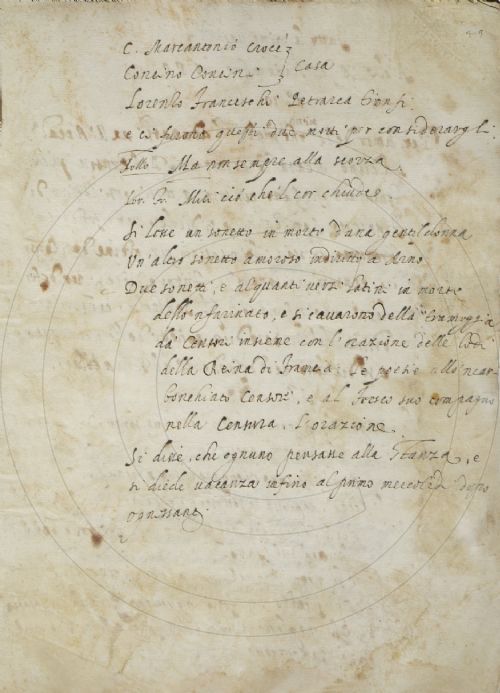 C. Marcantonio Croce
Concino Concini } Casa
Lorenzo Franceschi Petrarca
e ci furono questi due motti per considerargli.
Ma non sempre alla scorza
ciò che 'l cor chiude
Si lesse un sonetto in morte d'una gentildonna
Un'altro sonetto amoroso indiritto a Arno
Due sonetti, e alquanti versi latini in morte
dello'nfarinato, e si cavarono della tramoggia
da Censori insieme con l'orazione delle lodi
della Reina di Francia. le poesie allo'ncar
bonchiato Censore, e al Fresco suo compagno
nella Censura, l'orazione.
Si disse, che ognuno pensasse alla Stanza, e
si diede vacanza infino al primo mercoledì dopo
ognissanti